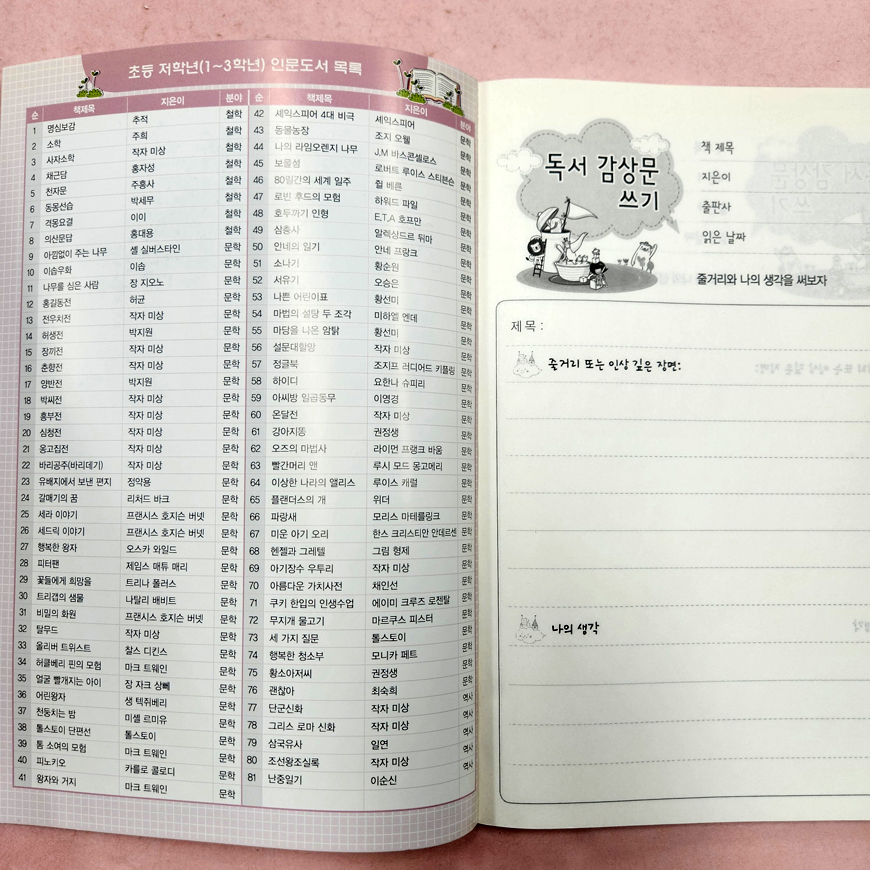 초등 저학년(1~3학년) 인문도서 목록
순 책제목 지은이 분야
1 명심보감 추적 철학
2 소학 주희 철학
3 사자소학 작자 미상 철학
4 채근담 홍자성 철학
5 천자문 주흥사 철학
6 동몽선습 박세무 철학
7 격몽요결 이이 철학
8 의산문답 홍대용 철학
9 아낌없이 주는 나무 셸 실버스타인 문학
10 이솝우화 이솝 문학
11 나무를 심은 사람 장 지오노 문학
12 홍길동전 허균 문학
13 전우치전 작자 미상 문학
14 허생전 박지원 문학
15 장끼전 작자 미상 문학
16 춘향전 작자 미상 문학
17 양반전 박지원 문학
18 박씨전 작자 미상 문학
19 흥부전 작자 미상 문학
20 심청전 작자 미상 문학
21 옹고집전 작자 미상 문학
22 바리공주(바리데기) 작자 미상 문학
23 유배지에서 보낸 편지 정약용 문학
24 갈매기의 꿈 리처드 바크 문학
25 세라 이야기 프랜시스 호지슨 버넷 문학
26 세드릭 이야기 프랜시스 호지슨 버넷 문학
27 행복한 왕자 오스카 와일드 문학
28 피터팬 제임스 매튜 매리 문학
29 꽃들에게 희망을 트리나 폴러스 문학
30 트리갭의 샘물 나탈리 배비트 문학
31 비밀의 화원 프랜시스 호지슨 버넷 문학
32 탈무드 작자 미상 문학
33 올리버 트위스트 찰스 디킨스 문학
34 허클베리 핀의 모험 마크 트웨인 문학
35 얼굴 빨개지는 아이 장 자크 상뻬 문학
36 어린왕자 생 텍쥐베리 문학
37 천둥치는 밤 미셸 르미유 문학
38 톨스토이 단편선 톨스토이 문학
39 톰 소여의 모험 마크 트웨인 문학
40 피노키오 카를로 콜로디 문학
41 왕자와 거지 마크 트웨인 문학
순 책제목 지은이 분야
42 셰익스피어 4대 비극 셰익스피어 문학
43 동물농장 조지 오웰 문학
44 나의 라임오렌지 나무 J.M 바스콘셀로스 문학
45 보물섬 로버트 루이스 스티븐슨 문학
46 80일간의 세계 일주 쥘 베른 문학
47 로빈 후드의 모험 하워드 파일 문학
48 호두까기 인형 E.T.A 호프만 문학
49 삼총사 알렉상드르 뒤마 문학
50 안네의 일기 안네 프랑크 문학
51 소나기 황순원 문학
52 서유기 오승은 문학
53 나쁜 어린이표 황선미 문학
54 마법의 설탕 두 조각 미하엘 엔데 문학
55 마당을 나온 암탉 황선미 문학
56 설문대할망 작자 미상 문학
57 정글북 조지프 러디어드 키플링 문학
58 하이디 요한나 슈피리 문학
59 아씨방 일곱동무 이영경 문학
60 온달전 작자 미상 문학
61 강아지똥 권정생 문학
62 오즈의 마법사 라이먼 프랭크 바움 문학
63 빨간머리 앤 루시 모드 몽고메리 문학
64 이상한 나라의 앨리스 루이스 캐럴 문학
65 플랜더스의 개 위더 문학
66 파랑새 모리스 마테를링크 문학
67 미운 아기 오리 한스 크리스티안 안데르센 문학
68 헨젤과 그레텔 그림 형제 문학
69 아기장수 우투리 작자 미상 문학
70 아름다운 가치사전 채인선 문학
71 쿠키 한입의 인생수업 에이미 크루즈 로젠탈 문학
72 무지개 물고기 마르쿠스 피스터 문학
73 세 가지 질문 톨스토이 문학
74 행복한 청소부 모니카 페트 문학
75 황소아저씨 권정생 문학
76 괜찮아 최숙희 문학
77 단군신화 작자 미상 역사
78 그리스 로마 신화 작자 미상 역사
79 삼국유사 일연 역사
80 조선왕조실록 작자 미상 역사
81 난중일기 이순신 역사
독서 감상문
쓰기
책 제목
지은이
출판사
읽은 날짜
줄거리와 나의 생각을 써보자
제목 :
줄거리 또는 인상 깊은 장면:
나의 생각